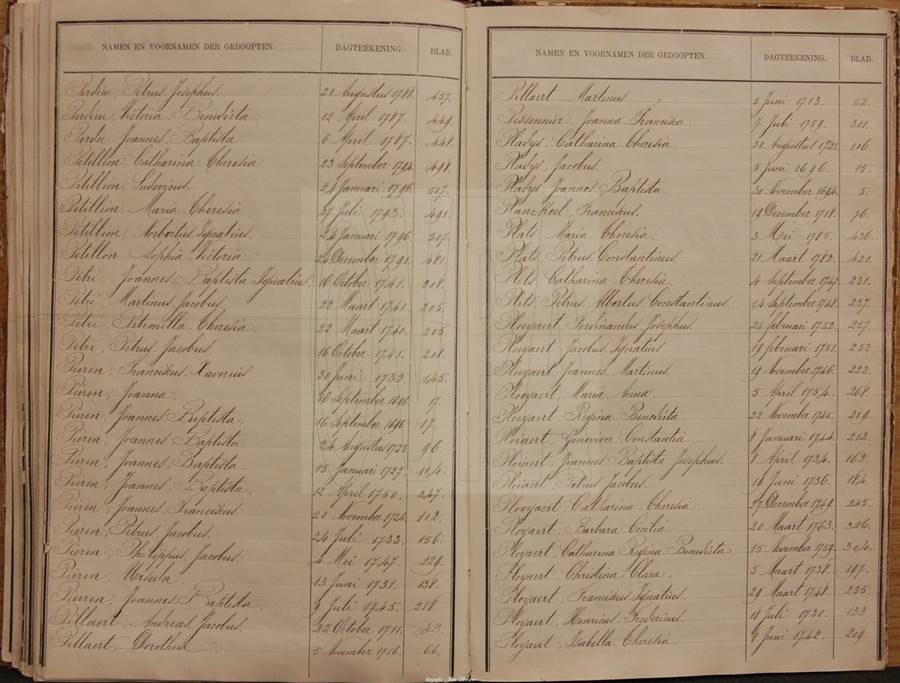 NAMEN EN VOORNAMEN DER GEDOOPTEN. DAGTEEKENING. BLAD.
Perdu, Petrus Josephus. 21 Augustus 1788. 457.
Perdu, Victoria Benedicta 12 April 1787. 449.
Perdu, Joannes Baptista 6 April 1787. 448.
Petillion Catharina Theresia 23 September 1794. 498.
Petillion, Ludovicus. 24 Januari 1796. 507.
Petillion, Maria Theresia 27 Juli 1793. 491.
Petillion, Norbertus Ignatius 24 Januari 1796. 507.
Petillon, Sophia Victoria 24 December 1791. 481.
Petri, Joannes Baptista Ignatius 16 October 1741. 208.
Petri, Martinus Jacobus. 22 Maart 1741. 205.
Petri, Petronella Theresia 22 Maart 1740. 205.
Petri, Petrus Jacobus. 16 October 1741. 208.
Pieren, Franciskus Xaverius. 30 Juni 1732. 145.
Pieren, Joanna. 16 September 1696 17.
Pieren Joannes Baptista. 16 September 1696 17.
Pieren, Joannes Baptista. 24 Augustus 1723 96.
Pieren, Joannes Baptista. 15 Januari 1727. 114.
Pieren, Joannes Baptista, 12 April 1750. 247.
Pieren, Joannes Franciskus. 20 November 1724. 102.
Pieren, Petrus Jacobus. 24 Juli 1733. 156.
Pieren, Philippus Jacobus. 4 Mei 1747. 229.
Pieren, Ursula. 13 Juni 1731. 138.
Pierren, Joannes Baptista. 9 Juli 1745. 218.
Pillaert, Andreas Jacobus. 22 October 1711. 43.
Pillaert, Dorothea 5 November 1716. 66.
NAMEN EN VOORNAMEN DER GEDOOPTEN. DAGTEEKENING. BLAD.
Pillaert Martinus, 5 Juni 1713. 52.
Pissonnier, Joanna Franciska. 7 Juli 1759. 301.
Pladys, Catharina Theresia. 31 Augustus 1722. 116.
Pladys, Jacobus. 5 Juni 1696. 15.
Pladys Joannes Baptista 30 November 1694. 5.
Planckeel, Franciskus. 14 December 1718. 76.
Plats, Maria Theresia 3 Mei 1785. 436.
Plats, Petrus Constantinus. 21 Maart 1782. 421.
Plets Catharina Theresia 4 September 1747. 231.
Plets, Petrus Albertus Constantinus. 14 September 1748. 237.
Ploeyaert, Ferdinandus Josephus. 23 februari 1752. 257.
Ploeyaert, Jacobus Ignatius 19 februari 1751. 252.
Ploeyaert, Joannes Martinus. 19 November 1746. 222.
Ploeyaert, Maria Anna. 5 April 1754. 268.
Ploeyaert, Regina Benedicta 22 November 1745. 219.
Ploiaert, Genoviva Constantia. 8 Januari 1744. 212.
Ploiaert, Joannes Baptista Josephus. 8 April 1734. 162.
Ploiaert, Petrus Jacobus. 16 Juni 1736. 184.
Plooyaert, Catharina Theresia 27 December 1749. 245.
Ployaert, Barbara Cecilia 20 Maart 1763. 326.
Ployaert, Catharina Regina Benedicta 15 November 1759. 304.
Ployaert, Christina Clara. 5 Maart 1738. 197.
Ployaert, Franciskus Ignatius. 29 Maart 1748. 235.
Ployaert, Henricus Fredericus. 18 Juli 1730. 133
Ployaert, Isabella Theresia 9 Juni 1742. 209.